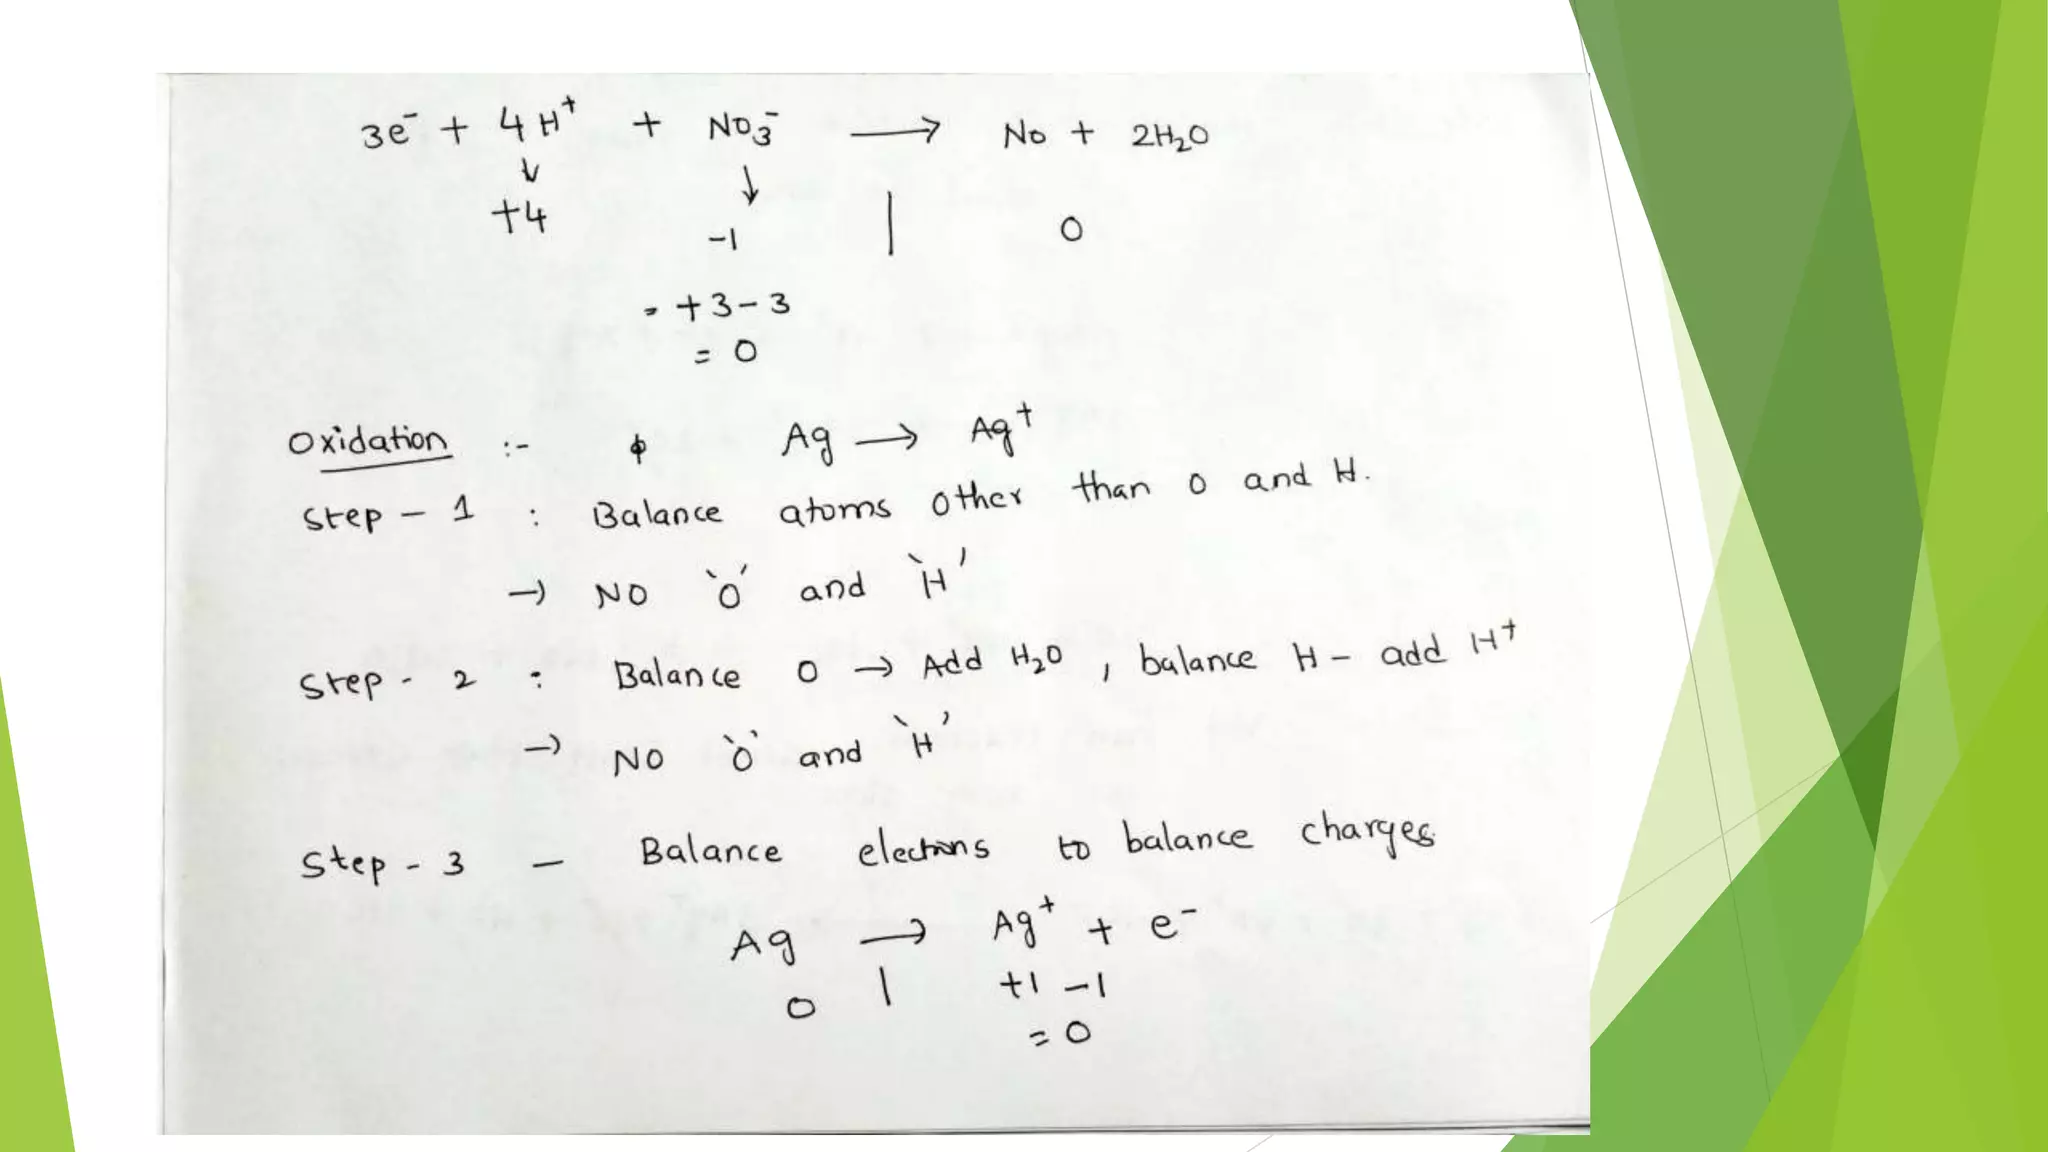 3e⁻ + 4H⁺ + NO₃⁻ → NO + 2H₂O
↓ ↓
+4 -1 | 0
= +3-3
= 0
Oxidation :- Ag → Ag⁺
Step - 1 : Balance atoms other than O and H.
→ NO 'O' and 'H'
Step - 2 : Balance O → Add H₂O , balance H - add H⁺
→ NO 'O' and 'H'
Step - 3 - Balance electrons to balance charges.
Ag → Ag⁺ + e⁻
0 | +1 -1
= 0